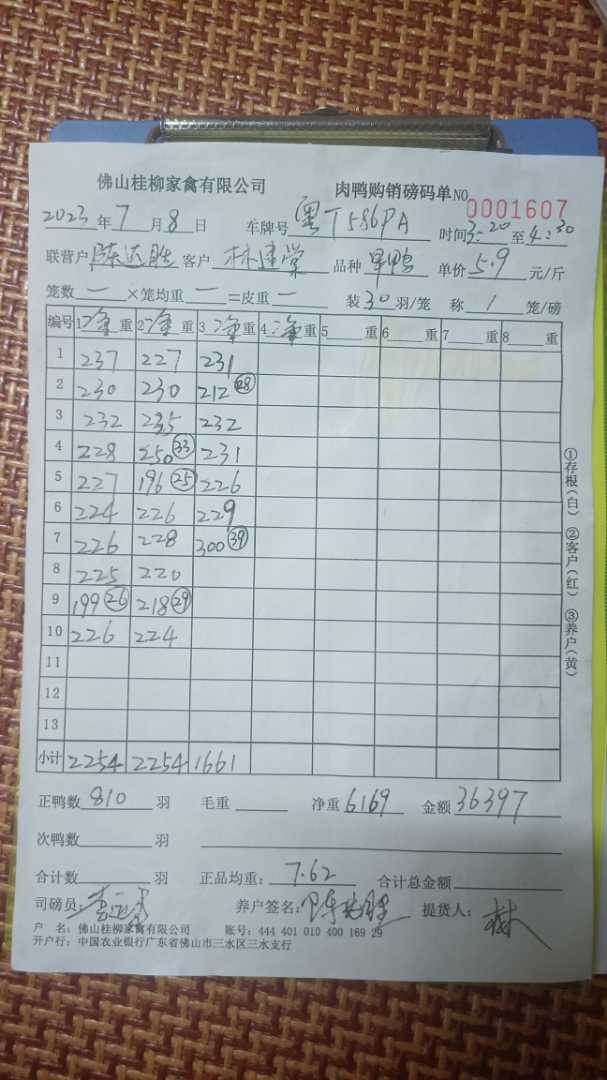 佛山桂柳家禽有限公司 肉鸭购销磅码单 NO 0001607
2023年7月8日 车牌号 粤T586PA 时间3:20至4:30
联营户 陈远胜 客户 林建棠 品种 旱鸭 单价5.9元/斤
笼数 一 ×笼均重 一 =皮重 一 装30羽/笼 称 1 笼/磅
编号 1净重 2净重 3净重 4净重 5 重 6 重 7 重 8 重
1 237 227 231
2 230 230 212 (28)
3 232 235 232
4 228 250 (33) 231
5 227 196 (25) 226
6 224 226 229
7 226 228 300 (39)
8 225 220
9 199 (26) 218 (29)
10 226 224
11
12
13
小计 2254 2254 1661
正鸭数 810 羽 毛重 净重 6169 金额 36397
次鸭数 羽
合计数 羽 正品均重: 7.62 合计总金额
司磅员: 养户签名: 陈远胜 提货人: 林
户 名: 佛山桂柳家禽有限公司 账号: 444 401 010 400 169 29
开户行: 中国农业银行广东省佛山市三水区三水支行
①存根(白) ②客户(红) ③养户(黄)